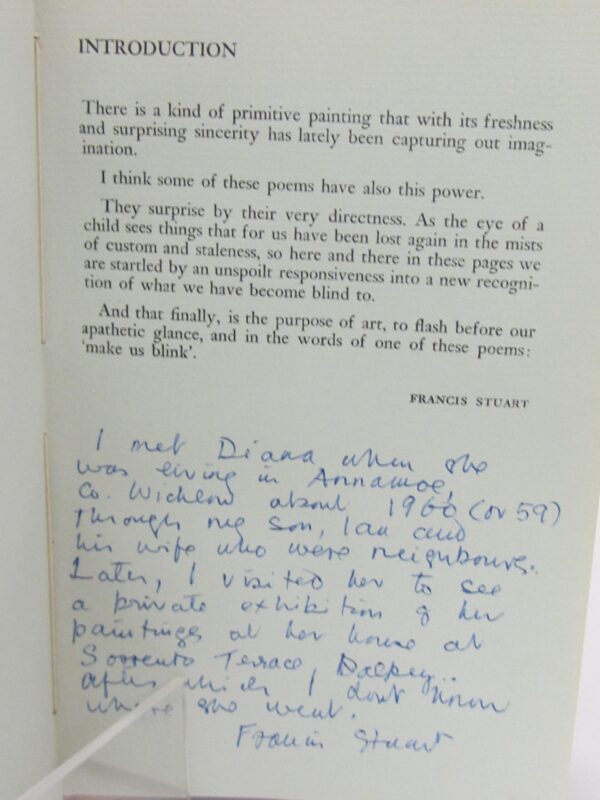 INTRODUCTION
There is a kind of primitive painting that with its freshness
and surprising sincerity has lately been capturing out imag-
ination.
I think some of these poems have also this power.
They surprise by their very directness. As the eye of a
child sees things that for us have been lost again in the mists
of custom and staleness, so here and there in these pages we
are startled by an unspoilt responsiveness into a new recogni-
tion of what we have become blind to.
And that finally, is the purpose of art, to flash before our
apathetic glance, and in the words of one of these poems:
'make us blink'.
FRANCIS STUART
I met Diana when she
was living in Annamoe,
Co. Wicklow about 1960 (or 59)
through my son, Ian and
his wife who were neighbours.
Later, I visited her to see
a private exhibition of her
paintings at her house at
Sorrento Terrace, Dalkey..
after which I dont know
where she went.
Francis Stuart